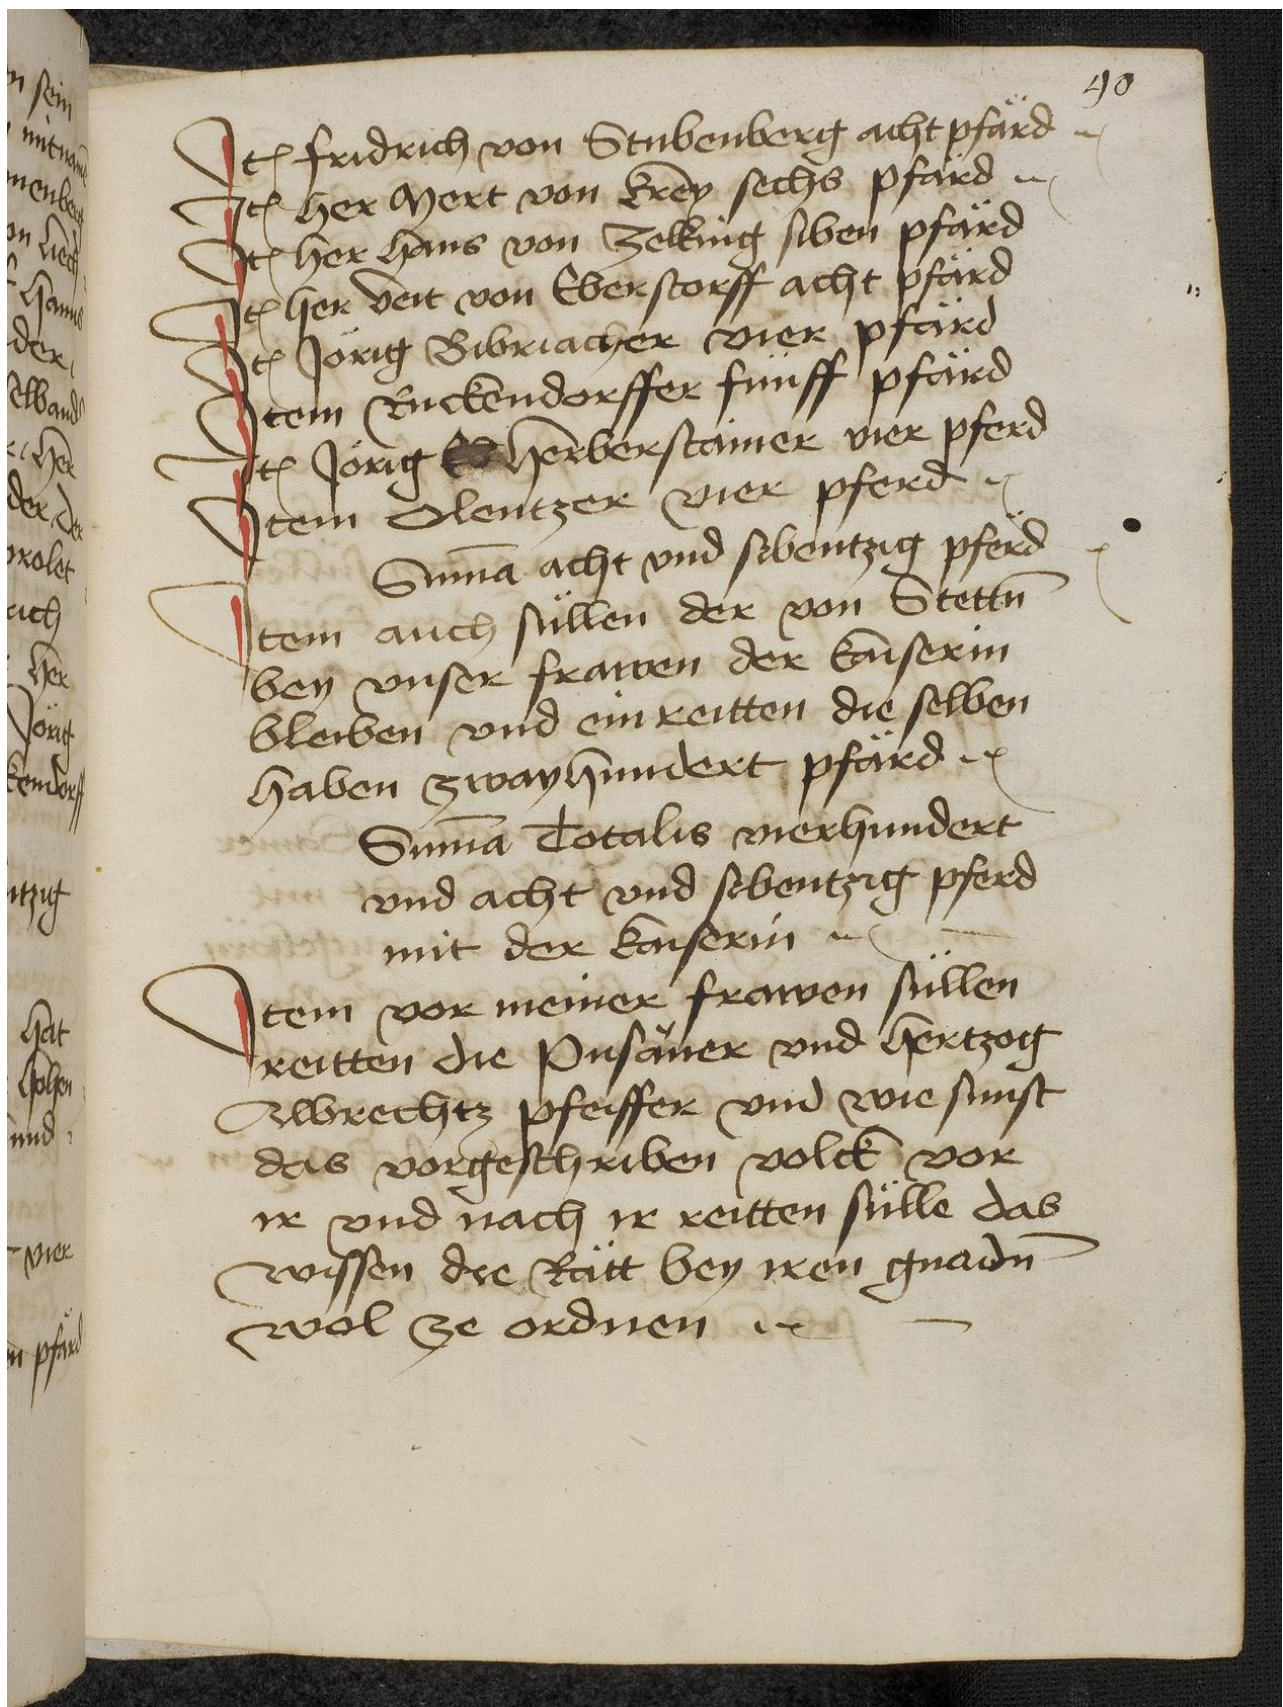 90
It. fridrich von Stubenberg acht pfärd
It. her Mert von Krey sechs pfärd
It. her Hans von Zelking siben pfärd
It. her Veit von Eberstorff acht pfärd
It. Jörig Bibriacher vier pfärd
Item Ruckendorffer fünff pfärd
It. Jörig Herberstainer vier pferd
Item Olentzer vier pferd
Suma acht vnd sibentzig pferd
Item auch süllen der von Stettn
bey vnser frawen der kaiserin
bleiben vnd einreitten die selben
haben zwayhundert pfärd
Suma Totalis vierhundert
vnd acht vnd sibentzig pferd
mit der kaiserin
Item vor meiner frawen süllen
reitten die Pusäuner vnd hertzog
Albrechtz pfeiffer vnd wie sunst
das vorgeschriben volck vor
ir vnd nach ir reitten sülle das
wissen die Rätt bey iren gnadn
wol ze ordnen